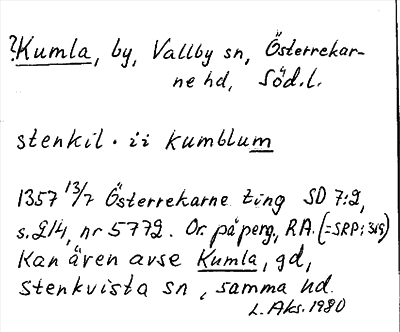 ?Kumla, by, Vallby sn, Österrekar-
ne hd, Söd.l.
stenkil · ii kumblum
1357 13/7 Österrekarne ting SD 7:2,
s. 214, nr 5772. Or. på perg, RA. (=SRP: 319)
Kan även avse Kumla, gd,
Stenkvista sn, samma hd.
L. Aks. 1980